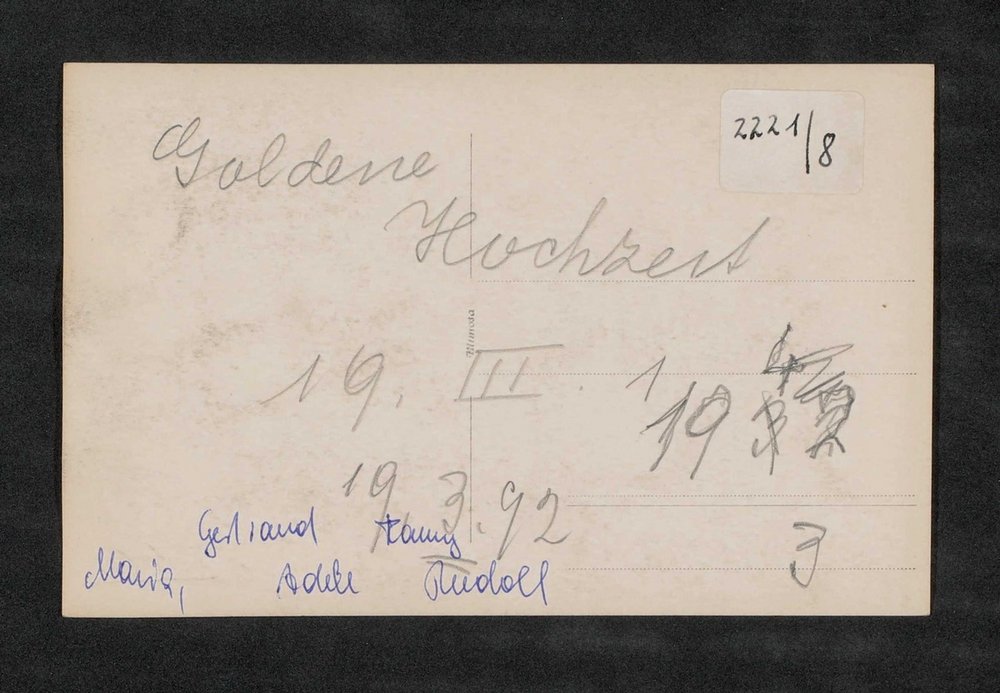 2221/8
Goldene
Hochzeit
Mimosa
19. III. 1
19 4
19 3. 92
3
Gertraud Fanny
Maria, Adele Rudolf